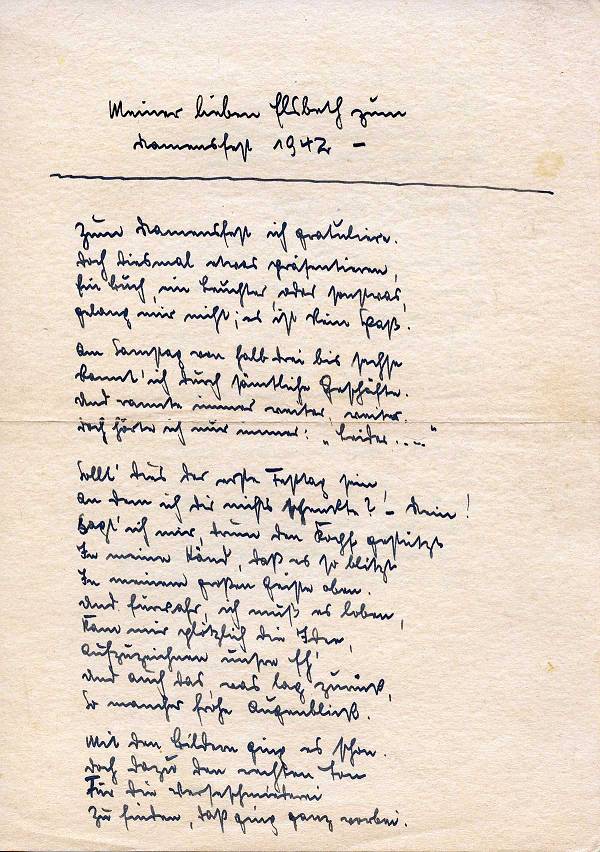 Meiner lieben Elsbeth zum
Namensfest 1942 –
Zum Namensfest ich gratuliere.
Doch diesmal etwas präsentieren,
Ein Buch, ein Leuchter, oder sonstwas,
gelang mir nicht; es ist kein Spaß.
Am Samstag von halb drei bis sechse
Rannt' ich durch sämtliche Geschäfte.
Und rannte immer weiter, weiter.
doch hörte ich nur immer: „Leider...."
Sollt' dies der erste Festtag sein
An dem ich dir nichts schenkte? – Nein!
Sagt' ich mir, drum den Kopf gestützt
In meine Händ, daß es so blitzt
In meinem großen Geiste oben.
Und fürwahr, ich muß es loben,
Kam mir plötzlich die Idee,
Aufzuzeichnen unsre Eh'
Und auch das, was lag zurück,
So mancher frohe Augenblick.
Mit den Bildern ging es schon.
Doch dazu den rechten Ton
Für die Verseschmieterei
Zu finden, daß ging ganz vorbei.